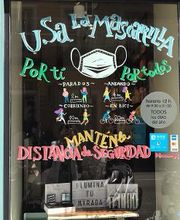 USa La Mascarilla
Por ti
Por todos
PARADOS
ANDANDO
CORRIENDO
EN BICI
horario 12 h.
TODOS
los días
del año
MANTÉN la
DISTANCIA de SEGURIDAD
ILUMINA
TU
MIRADA